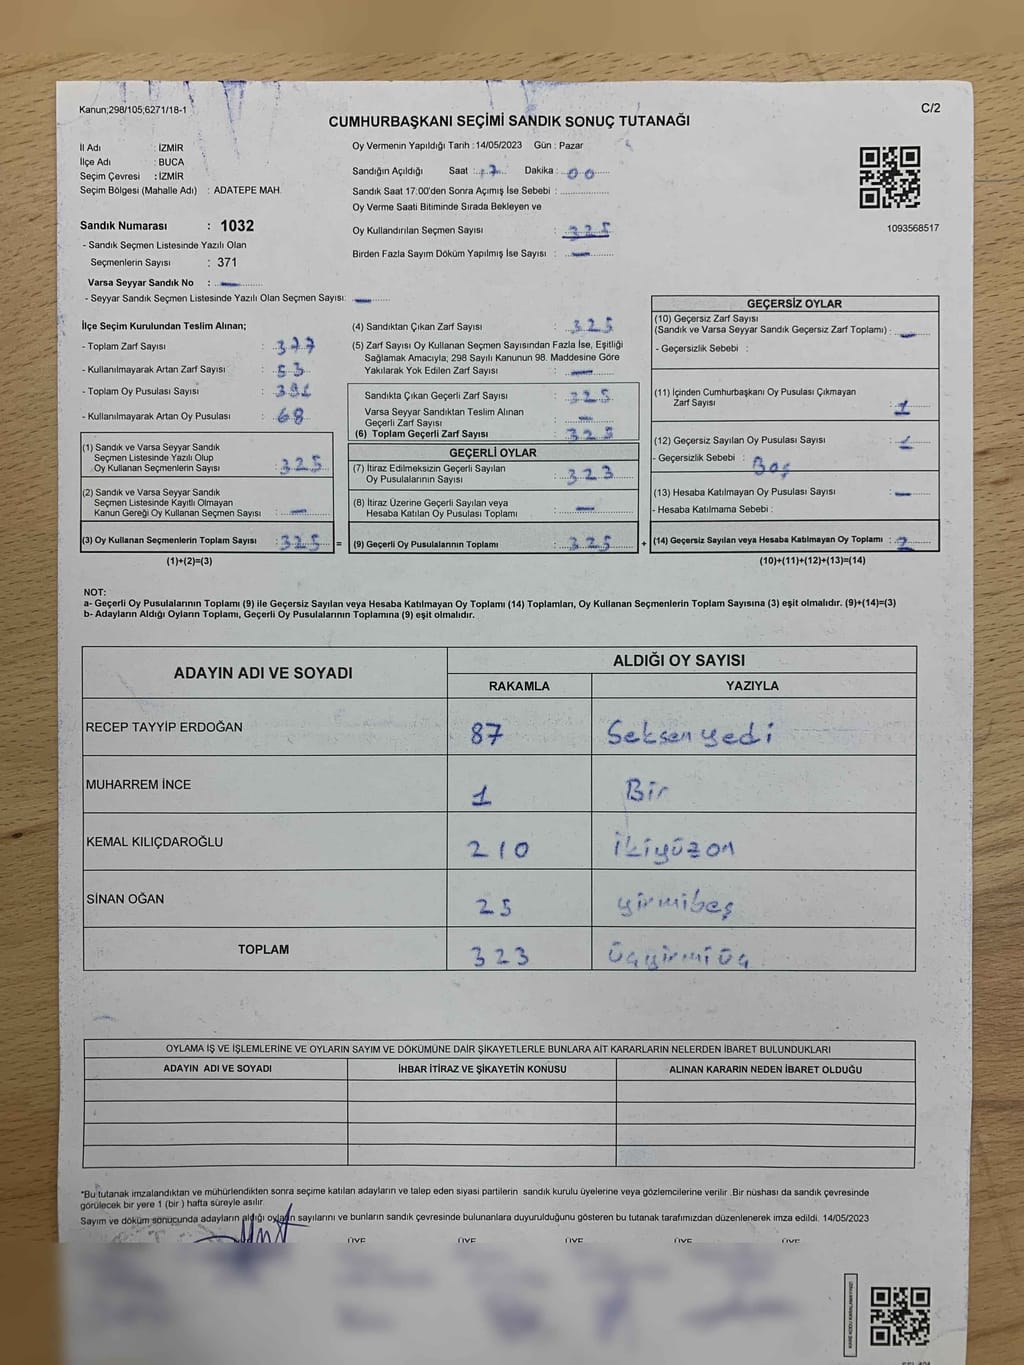 Kanun;298/105;6271/18-1
C/2
CUMHURBAŞKANI SEÇİMİ SANDIK SONUÇ TUTANAĞI
İl Adı : İZMİR
İlçe Adı : BUCA
Seçim Çevresi : İZMİR
Seçim Bölgesi (Mahalle Adı) : ADATEPE MAH.
Sandık Numarası : 1032
- Sandık Seçmen Listesinde Yazılı Olan
Seçmenlerin Sayısı : 371
Varsa Seyyar Sandık No : —
- Seyyar Sandık Seçmen Listesinde Yazılı Olan Seçmen Sayısı: —
Oy Vermenin Yapıldığı Tarih : 14/05/2023 Gün : Pazar
Sandığın Açıldığı Saat : 17 Dakika : 00
Sandık Saat 17:00'den Sonra Açımış İse Sebebi :
Oy Verme Saati Bitiminde Sırada Bekleyen ve
Oy Kullandırılan Seçmen Sayısı : 325
Birden Fazla Sayım Döküm Yapılmış İse Sayısı : —
1093568517
İlçe Seçim Kurulundan Teslim Alınan;
- Toplam Zarf Sayısı : 377
- Kullanılmayarak Artan Zarf Sayısı : 53
- Toplam Oy Pusulası Sayısı :
- Kullanılmayarak Artan Oy Pusulası : 68
(1) Sandık ve Varsa Seyyar Sandık
Seçmen Listesinde Yazılı Olup
Oy Kullanan Seçmenlerin Sayısı : 325
(2) Sandık ve Varsa Seyyar Sandık
Seçmen Listesinde Kayıtlı Olmayan
Kanun Gereği Oy Kullanan Seçmen Sayısı : —
(3) Oy Kullanan Seçmenlerin Toplam Sayısı : 325 =
(1)+(2)=(3)
(4) Sandıktan Çıkan Zarf Sayısı : 325
(5) Zarf Sayısı Oy Kullanan Seçmen Sayısından Fazla İse, Eşitliği
Sağlamak Amacıyla; 298 Sayılı Kanunun 98. Maddesine Göre
Yakılarak Yok Edilen Zarf Sayısı : —
Sandıkta Çıkan Geçerli Zarf Sayısı : 325
Varsa Seyyar Sandıktan Teslim Alınan
Geçerli Zarf Sayısı : —
(6) Toplam Geçerli Zarf Sayısı : 325
GEÇERLİ OYLAR
(7) İtiraz Edilmeksizin Geçerli Sayılan
Oy Pusulalarının Sayısı : 323
(8) İtiraz Üzerine Geçerli Sayılan veya
Hesaba Katılan Oy Pusulası Toplamı : —
(9) Geçerli Oy Pusulalarının Toplamı : 325 +
GEÇERSİZ OYLAR
(10) Geçersiz Zarf Sayısı
(Sandık ve Varsa Seyyar Sandık Geçersiz Zarf Toplamı) : —
- Geçersizlik Sebebi :
(11) İçinden Cumhurbaşkanı Oy Pusulası Çıkmayan
Zarf Sayısı : 1
(12) Geçersiz Sayılan Oy Pusulası Sayısı : 1
- Geçersizlik Sebebi : Boş
(13) Hesaba Katılmayan Oy Pusulası Sayısı : —
- Hesaba Katılmama Sebebi :
(14) Geçersiz Sayılan veya Hesaba Katılmayan Oy Toplamı : 2
(10)+(11)+(12)+(13)=(14)
NOT:
a- Geçerli Oy Pusulalarının Toplamı (9) ile Geçersiz Sayılan veya Hesaba Katılmayan Oy Toplamı (14) Toplamları, Oy Kullanan Seçmenlerin Toplam Sayısına (3) eşit olmalıdır. (9)+(14)=(3)
b- Adayların Aldığı Oyların Toplamı, Geçerli Oy Pusulalarının Toplamına (9) eşit olmalıdır.
ADAYIN ADI VE SOYADI
ALDIĞI OY SAYISI
RAKAMLA YAZIYLA
RECEP TAYYİP ERDOĞAN 87 Seksenyedi
MUHARREM İNCE 1 Bir
KEMAL KILIÇDAROĞLU 210 ikiyüzon
SİNAN OĞAN 25 yirmibeş
TOPLAM 323 üçyirmiüç
OYLAMA İŞ VE İŞLEMLERİNE VE OYLARIN SAYIM VE DÖKÜMÜNE DAİR ŞİKAYETLERLE BUNLARA AİT KARARLARIN NELERDEN İBARET BULUNDUKLARI
ADAYIN ADI VE SOYADI İHBAR İTİRAZ VE ŞİKAYETİN KONUSU ALINAN KARARIN NEDEN İBARET OLDUĞU
*Bu tutanak imzalandıktan ve mühürlendikten sonra seçime katılan adayların ve talep eden siyasi partilerin sandık kurulu üyelerine veya gözlemcilerine verilir .Bir nüshası da sandık çevresinde
görülecek bir yere 1 (bir ) hafta süreyle asılır.
Sayım ve döküm sonucunda adayların aldığı oyların sayılarını ve bunların sandık çevresinde bulunanlara duyurulduğunu gösteren bu tutanak tarafımızdan düzenlenerek imza edildi. 14/05/2023
ÜYE ÜYE ÜYE ÜYE ÜYE